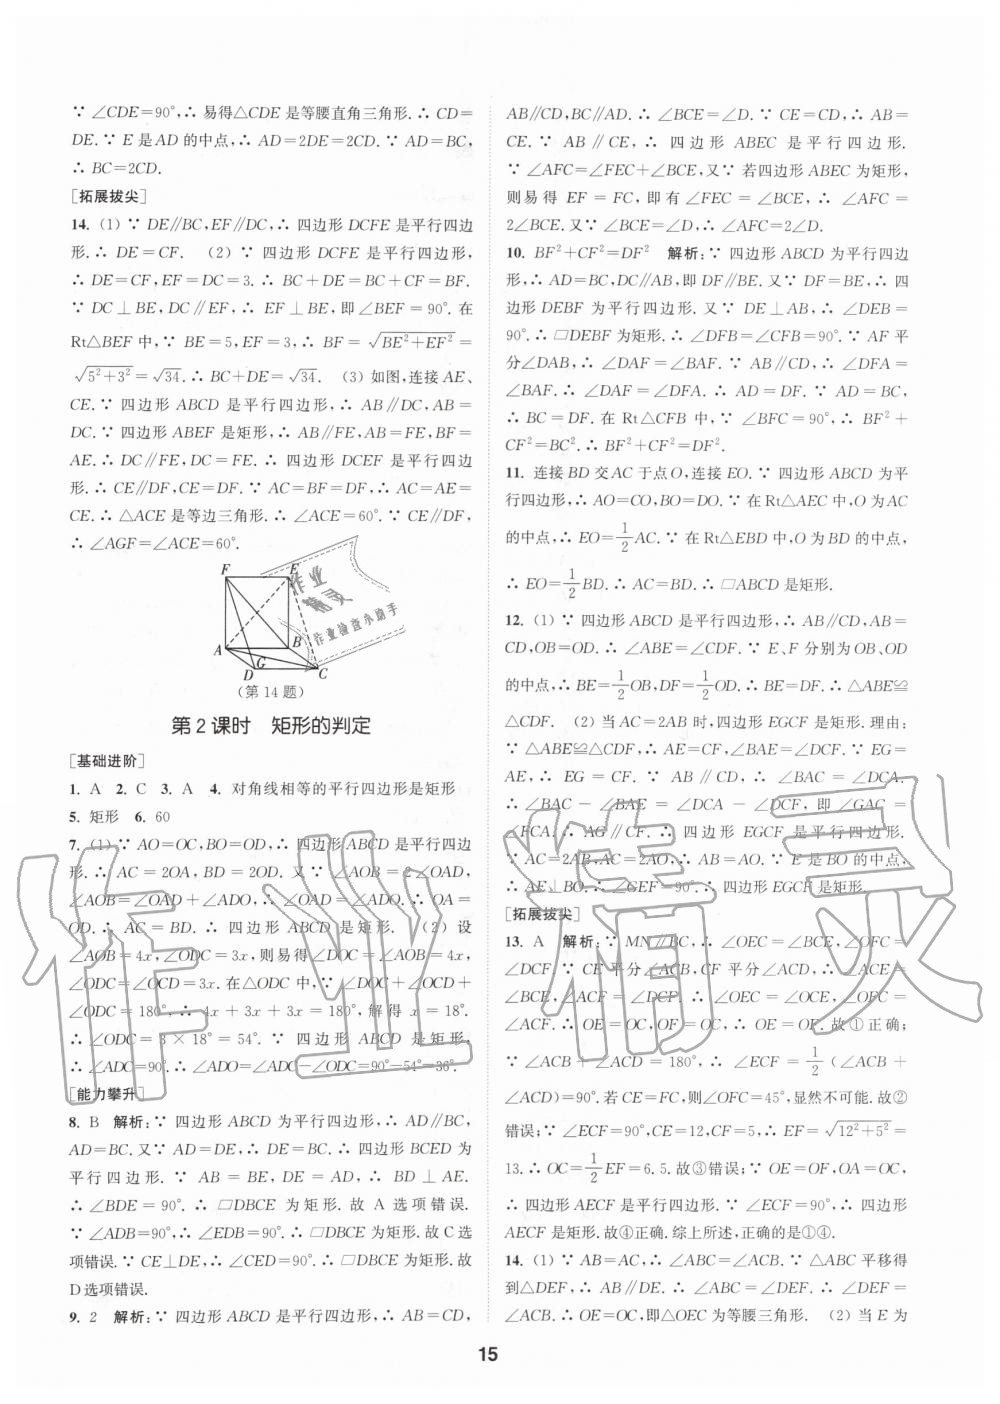 ∵ ∠CDE=90°,∴ 易得△CDE 是等腰直角三角形.∴ CD=
DE.∵ E 是 AD 的中点,∴ AD=2DE=2CD.∵ AD=BC,
∴ BC=2CD.
[拓展拔尖]
14. (1) ∵ DE∥BC,EF∥DC,∴ 四边形 DCFE 是平行四边
形.∴ DE=CF. (2) ∵ 四边形 DCFE 是平行四边形,
∴ DE=CF,EF=DC=3.∴ BC+DE=BC+CF=BF.
∵ DC⊥BE,DC∥EF,∴ EF⊥BE,即∠BEF=90°.在
Rt△BEF 中,∵ BE=5,EF=3,∴ BF=√(BE²+EF²)=
√(5²+3²)=√34.∴ BC+DE=√34. (3) 如图,连接 AE、
CE.∵ 四边形 ABCD 是平行四边形,∴ AB∥DC,AB=
DC.∵ 四边形 ABEF 是矩形,∴ AB∥FE,AB=FE,BF=
AE.∴ DC∥FE,DC=FE.∴ 四边形 DCEF 是平行四边
形.∴ CE∥DF,CE=DF.∵ AC=BF=DF,∴ AC=AE=
CE.∴ △ACE 是等边三角形.∴ ∠ACE=60°.∵ CE∥DF,
∴ ∠AGF=∠ACE=60°.
F E
A B
G
D C
(第 14 题)
第 2 课时 矩形的判定
[基础进阶]
1. A 2. C 3. A 4. 对角线相等的平行四边形是矩形
5. 矩形 6. 60
7. (1) ∵ AO=OC,BO=OD,∴ 四边形 ABCD 是平行四边
形.∴ AC=2OA,BD=2OD.又∵ ∠AOB=2∠OAD,
∠AOB=∠OAD+∠ADO,∴ ∠OAD=∠ADO.∴ OA=
OD.∴ AC=BD.∴ 四边形 ABCD 是矩形. (2) 设
∠AOB=4x,∠ODC=3x,则易得∠DOC=∠AOB=4x,
∠ODC=∠OCD=3x.在△ODC 中,∵ ∠DOC+∠OCD+
∠ODC=180°,∴ 4x+3x+3x=180°,解得 x=18°.
∴ ∠ODC=3×18°=54°.∵ 四边形 ABCD 是矩形,
∴ ∠ADC=90°.∴ ∠ADO=∠ADC-∠ODC=90°-54°=36°.
[能力攀升]
8. B 解析:∵ 四边形 ABCD 为平行四边形,∴ AD∥BC,
AD=BC.又∵ AD=DE,∴ DE=BC.∴ 四边形 BCED 为
平行四边形.∵ AB=BE,DE=AD,∴ BD⊥AE.
∴ ∠BDE=90°.∴ ▱DBCE 为矩形.故 A 选项错误.
∵ ∠ADB=90°,∴ ∠EDB=90°.∴ ▱DBCE 为矩形.故 C 选
项错误.∵ CE⊥DE,∴ ∠CED=90°.∴ ▱DBCE 为矩形.故
D 选项错误.
9. 2 解析:∵ 四边形 ABCD 是平行四边形,∴ AB=CD,
AB∥CD,BC∥AD.∴ ∠BCE=∠D.∵ CE=CD,∴ AB=
CE.∵ AB∥CE,∴ 四边形 ABEC 是平行四边形.
∵ ∠AFC=∠FEC+∠BCE,又∵ 若四边形 ABEC 为矩形,
则易得 EF=FC,即有∠FEC=∠BCE,∴ ∠AFC=
2∠BCE.又∵ ∠BCE=∠D,∴ ∠AFC=2∠D.
10. BF²+CF²=DF² 解析:∵ 四边形 ABCD 为平行四边
形,∴ AD=BC,DC∥AB,即 DF∥BE.又∵ DF=BE,∴ 四
边形 DEBF 为平行四边形.又∵ DE⊥AB,∴ ∠DEB=
90°.∴ ▱DEBF 为矩形.∴ ∠DFB=∠CFB=90°.∵ AF 平
分∠DAB,∴ ∠DAF=∠BAF.∵ AB∥CD,∴ ∠DFA=
∠BAF.∴ ∠DAF=∠DFA.∴ AD=DF.∵ AD=BC,
∴ BC=DF.在 Rt△CFB 中,∵ ∠BFC=90°,∴ BF²+
CF²=BC².∴ BF²+CF²=DF².
11. 连接 BD 交 AC 于点 O,连接 EO.∵ 四边形 ABCD 为平
行四边形,∴ AO=CO,BO=DO.∵ 在 Rt△AEC 中,O 为 AC
的中点,∴ EO=1/2AC.∵ 在 Rt△EBD 中,O 为 BD 的中点,
∴ EO=1/2BD.∴ AC=BD.∴ ▱ABCD 是矩形.
12. (1) ∵ 四边形 ABCD 是平行四边形,∴ AB∥CD,AB=
CD,OB=OD.∴ ∠ABE=∠CDF.∵ E、F 分别为 OB、OD
的中点,∴ BE=1/2OB,DF=1/2OD.∴ BE=DF.∴ △ABE≌
△CDF. (2) 当 AC=2AB 时,四边形 EGCF 是矩形.理由:
∵ △ABE≌△CDF,∴ AE=CF,∠BAE=∠DCF.∵ EG=
AE,∴ EG=CF.∵ AB∥CD,∴ ∠BAC=∠DCA.
∴ ∠BAC-∠BAE=∠DCA-∠DCF,即∠GAC=
∠FCA.∴ AG∥CF.∴ 四边形 EGCF 是平行四边形.
∵ AC=2AB,AC=2AO,∴ AB=AO.∵ E 是 BO 的中点,
∴ AE⊥BO.∴ ∠GEF=90°.∴ 四边形 EGCF 是矩形.
[拓展拔尖]
13. A 解析:∵ MN∥BC,∴ ∠OEC=∠BCE,∠OFC=
∠DCF.∵ CE 平分∠ACB,CF 平分∠ACD,∴ ∠ACE=
∠BCE,∠ACF=∠DCF.∴ ∠OEC=∠OCE,∠OFC=
∠ACF.∴ OE=OC,OF=OC,∴ OE=OF.故①正确;
∵ ∠ACB+∠ACD=180°,∴ ∠ECF=1/2(∠ACB+
∠ACD)=90°.若 CE=FC,则∠OFC=45°,显然不可能.故②
错误;∵ ∠ECF=90°,CE=12,CF=5,∴ EF=√(12²+5²)=
13.∴ OC=1/2EF=6.5.故③错误;∵ OE=OF,OA=OC,
∴ 四边形 AECF 是平行四边形.∵ ∠ECF=90°,∴ 四边形
AECF 是矩形.故④正确.综上所述,正确的是①④.
14. (1) ∵ AB=AC,∴ ∠ABC=∠ACB.∵ △ABC 平移得
到△DEF,∴ AB∥DE.∴ ∠ABC=∠DEF.∴ ∠DEF=
∠ACB.∴ OE=OC,即△OEC 为等腰三角形. (2) 当 E 为
15
作业精灵
作业精灵
作业检查小助手